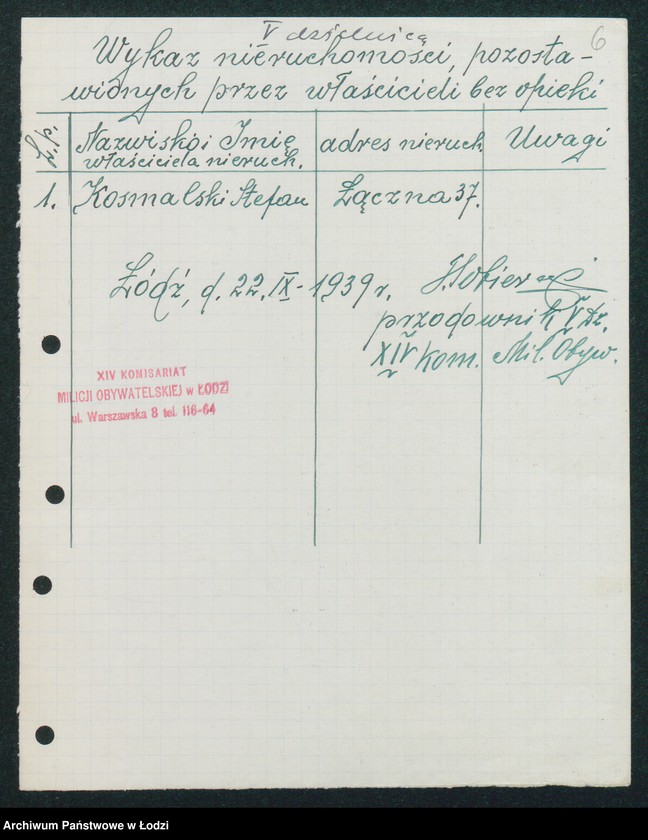 V dzielnica
6
Wykaz nieruchomości, pozosta-
wionych przez właścicieli bez opieki
Nazwisko i Imię
właściciela nieruch.
adres nieruch.
Uwagi
1. Kosmalski Stefan Łączna 37.
Łódź, d. 22.IX-1939 r.
przodownik V Dz.
XIV Kom. Mil. Obyw.
XIV KOMISARIAT
MILICJI OBYWATELSKIEJ w ŁODZI
ul. Warszawska 8 tel. 116-64
Archiwum Państwowe w Łodzi